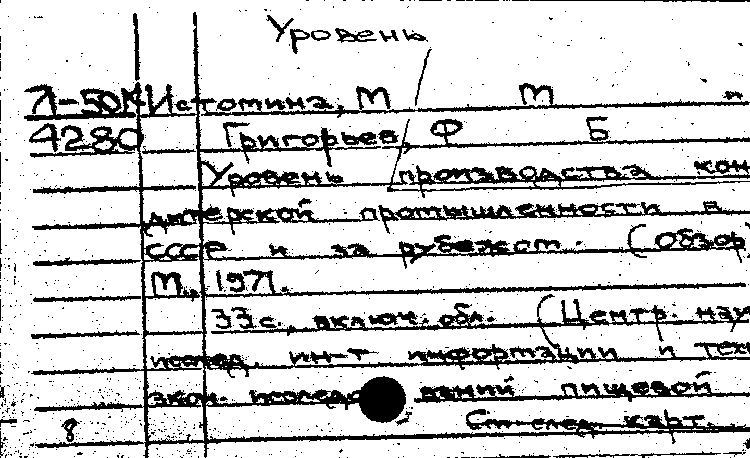 Уровень
Л-50К Истомина, М М и
4280 Григорьев, Ф Б
Уровень производства кон
дитерской промышленности в
СССР и за рубежом. (Обзор)
М., 1971.
33 с., включ. обл. (Центр. научн
исслед. ин-т информации и техн
экон. исследований пищевой
8 См. след. карт.